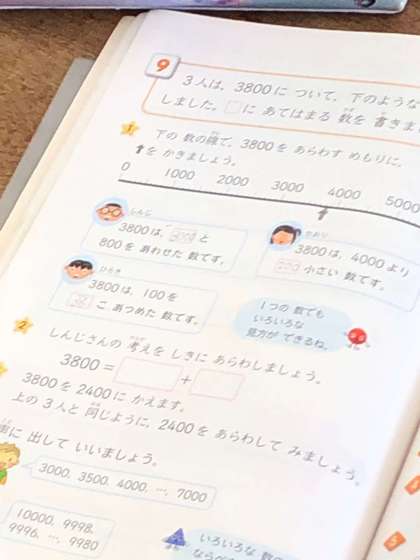 9
3人は、3800に ついて、下のような
しました。□に あてはまる 数を 書きま
1
下の 数の線で、3800を あらわす めもりに、
↑を かきましょう。
0 1000 2000 3000 4000 5000
しんじ
3800は、3000と
800を あわせた 数です。
かおり
3800は、4000より
200小さい 数です。
ひろき
3800は、100を
38こ あつめた 数です。
1つの 数でも
いろいろな
見方が できるね。
2
しんじさんの 考えを しきに あらわしましょう。
3800=□+□
3800を 2400に かえます。
上の 3人と 同じように、2400を あらわして みましょう。
に 出して いいましょう。
3000、3500、4000、…、7000
10000、9998、
9996、…、9980
いろいろな 数の
ならべ